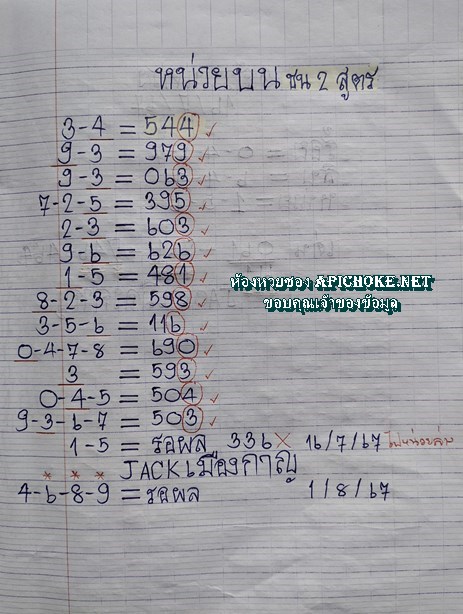 หน่วยบน ชน 2 สูตร
3-4 = 544 ✓
9-3 = 979 ✓
9-3 = 063 ✓
7-2-5 = 395 ✓
2-3 = 603 ✓
9-6 = 626 ✓
1-5 = 481 ✓
ห้องหวยซอง APICHOKE.NET
ขอบคุณเจ้าของข้อมูล
8-2-3 = 598 ✓
3-5-6 = 116 ✓
0-4-7-8 = 690 ✓
3 = 593 ✓
0-4-5 = 504 ✓
9-3-6-7 = 503 ✓
1-5 = รอผล 336 × 16/7/67
* * * JACK เมืองกาญ
4-6-8-9 = รอผล 1/8/67